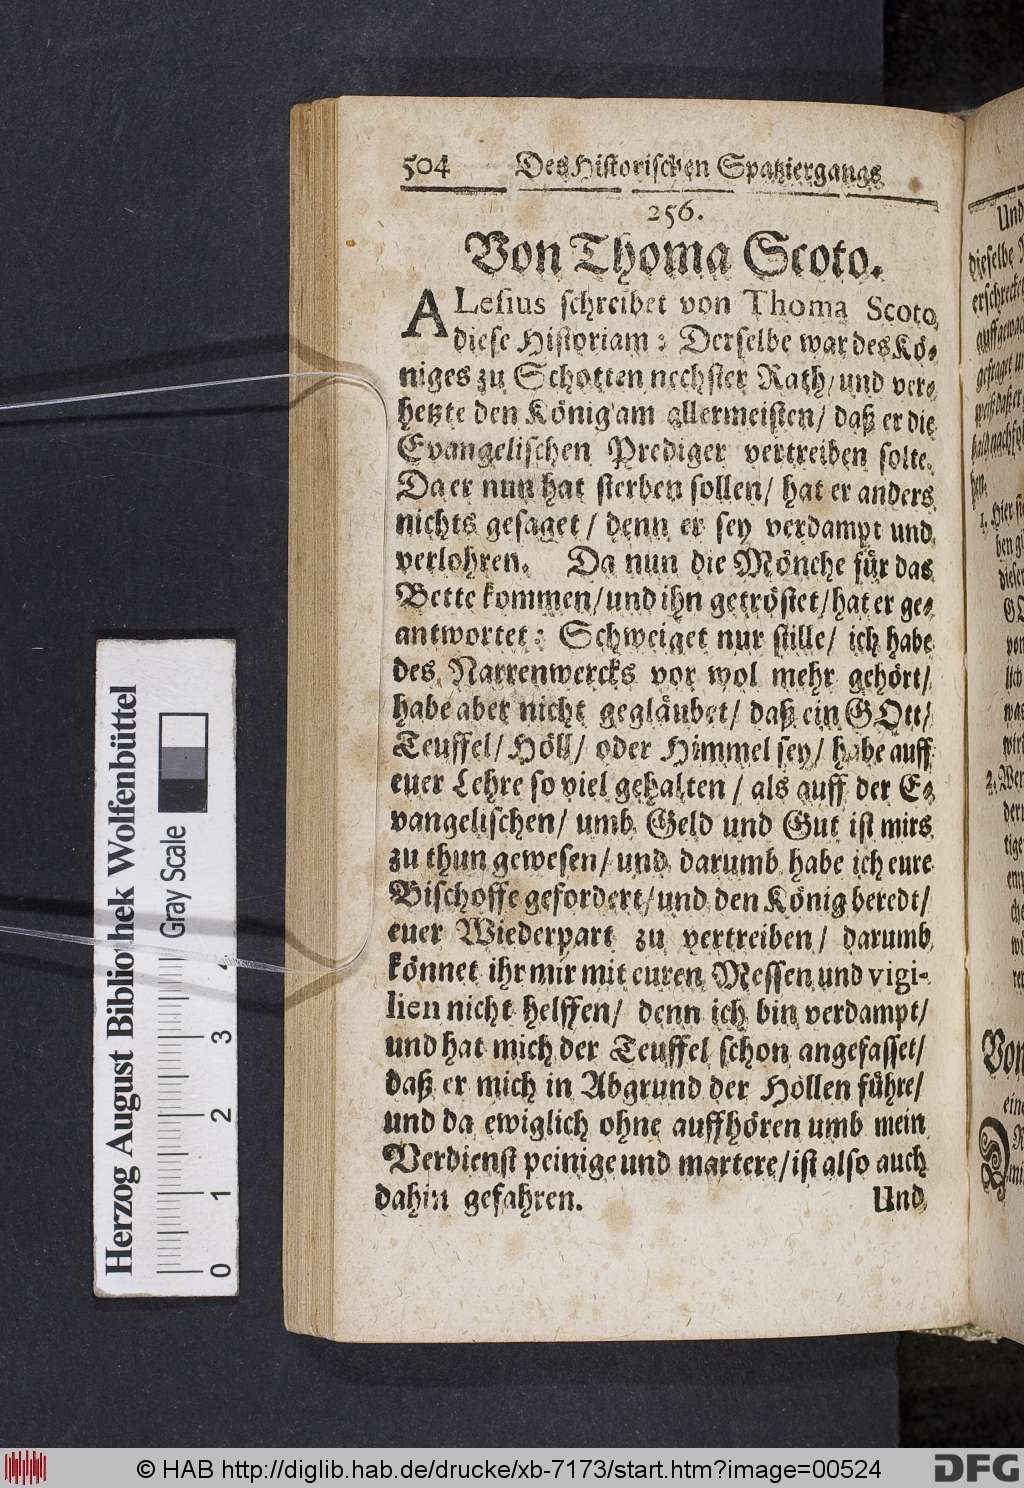 504 Des Historischen Spatziergangs
256.
Von Thoma Scoto.
ALesius schreibet von Thoma Scoto,
diese Historiam: Derselbe war des Kö-
niges zu Schotten nechster Rath/ und ver-
hetzte den König am allermeisten/ daß er die
Evangelischen Prediger vertreiben solte.
Da er nun hat sterben sollen/ hat er anders
nichts gesaget/ denn er sey verdampt und
verlohren. Da nun die Mönche für das
Bette kommen/ und ihn getröstet/ hat er ge-
antwortet: Schweiget nur stille/ ich habe
des Narrenwercks vor wol mehr gehört/
habe aber nicht gegläubet/ daß ein GOtt/
Teuffel/ Höll/ oder Himmel sey/ habe auff
euer Lehre so viel gehalten/ als auff der E-
vangelischen/ umb Geld und Gut ist mirs
zu thun gewesen/ und darumb habe ich eure
Bischoffe gefordert/ und den König beredt/
euer Wiederpart zu vertreiben/ darumb
könnet ihr mir mit euren Messen und vigi-
lien nicht helffen/ denn ich bin verdampt/
und hat mich der Teuffel schon angefasset/
daß er mich in Abgrund der Hollen führe/
und da ewiglich ohne auffhören umb mein
Verdienst peinige und martere/ ist also auch
dahin gefahren. Und
Und
dieselbe
Hier
GO
2. Wer
Von
eine
Herzog August Bibliothek Wolfenbüttel
Gray Scale
0 1 2 3 4
© HAB http://diglib.hab.de/drucke/xb-7173/start.htm?image=00524
DFG